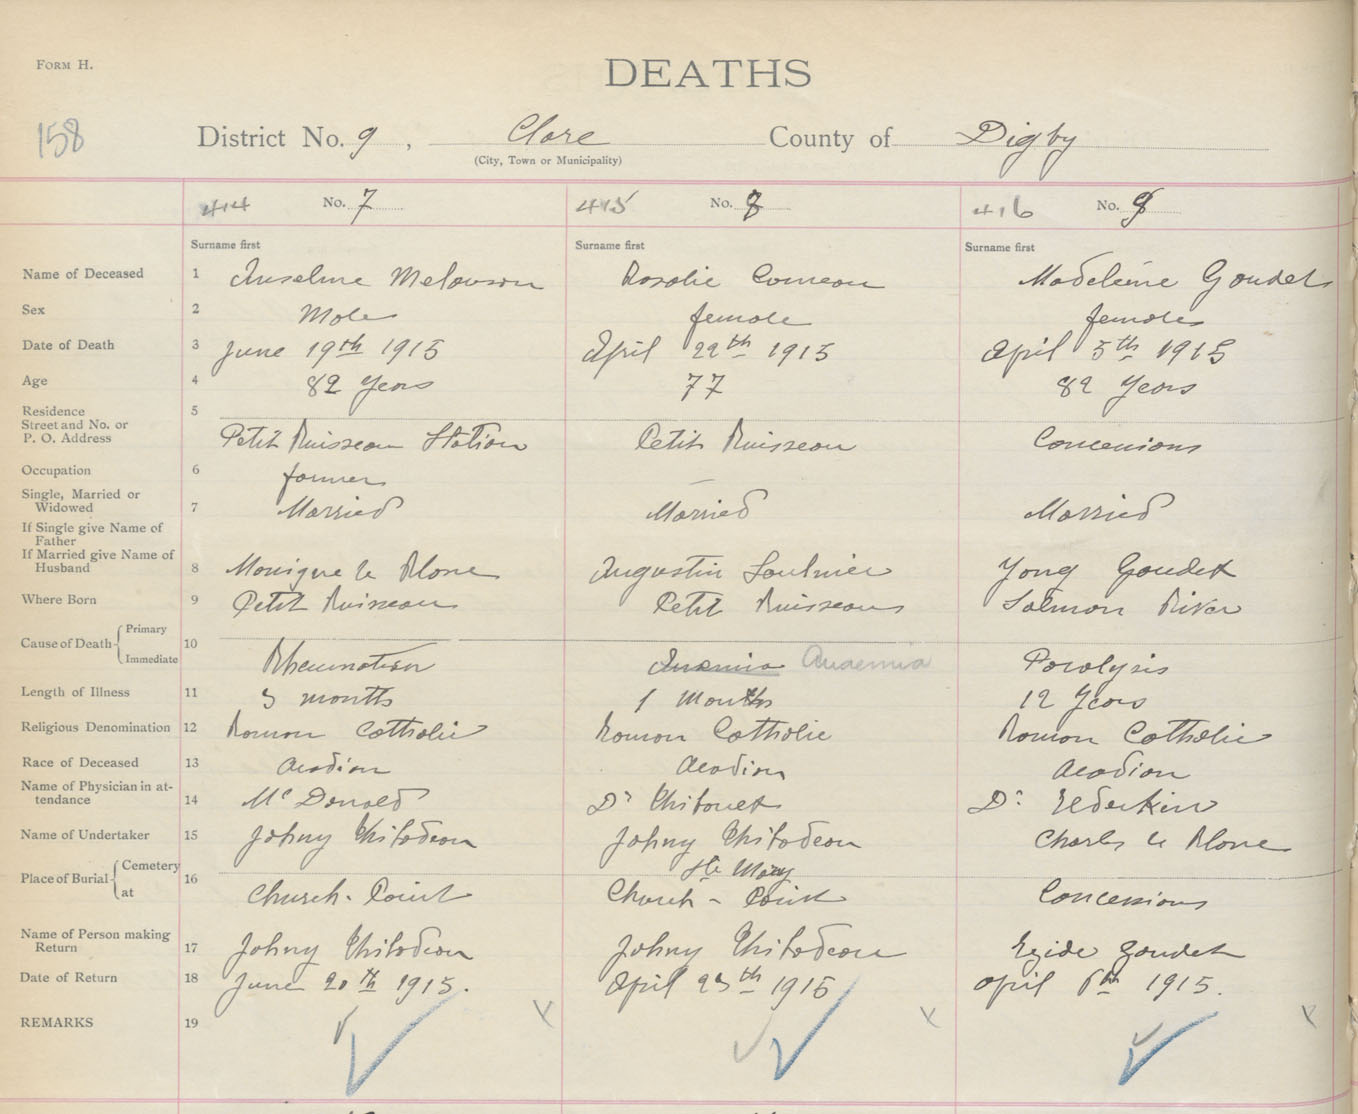 FORM H.
DEATHS
158
District No. 9, Clare County of Digby
(City, Town or Municipality)
414 No. 7 415 No. 8 416 No. 9
Surname first Surname first Surname first
Name of Deceased 1 Anselme Melanson Rosalie Comeau Madeleine Goudet
Sex 2 Male female female
Date of Death 3 June 19th 1915 April 22th 1915 April 5th 1915
Age 4 82 Years 77 82 Years
Residence 5
Street and No. or
P. O. Address Petit Ruisseau Station Petit Ruisseau Concessions
Occupation 6 farmer —
Single, Married or
Widowed 7 Married Married Married
If Single give Name of
Father
If Married give Name of
Husband 8 Monique le Blanc Augustin Saulnier Yong Goudet
Where Born 9 Petit Ruisseau Petit Ruisseau Salmon River
Cause of Death Primary 10
Immediate Rheumatism Anemia Anaemia Paralysis
Length of Illness 11 3 months 1 Months 12 Years
Religious Denomination 12 Roman Catholic Roman Catholic Roman Catholic
Race of Deceased 13 Acadian Acadian Acadian
Name of Physician in at-
tendance 14 Mc Donald Dr Dr Elderkin
Name of Undertaker 15 Johny Thibodeau Johny Thibodeau Charles le Blanc
Place of Burial Cemetery 16 Ste Mary
at Church-Point Church-Point Concessions
Name of Person making
Return 17 Johny Thibodeau Johny Thibodeau Goudet
Date of Return 18 June 20th 1915. April 23th 1915 April 6th 1915.
REMARKS 19